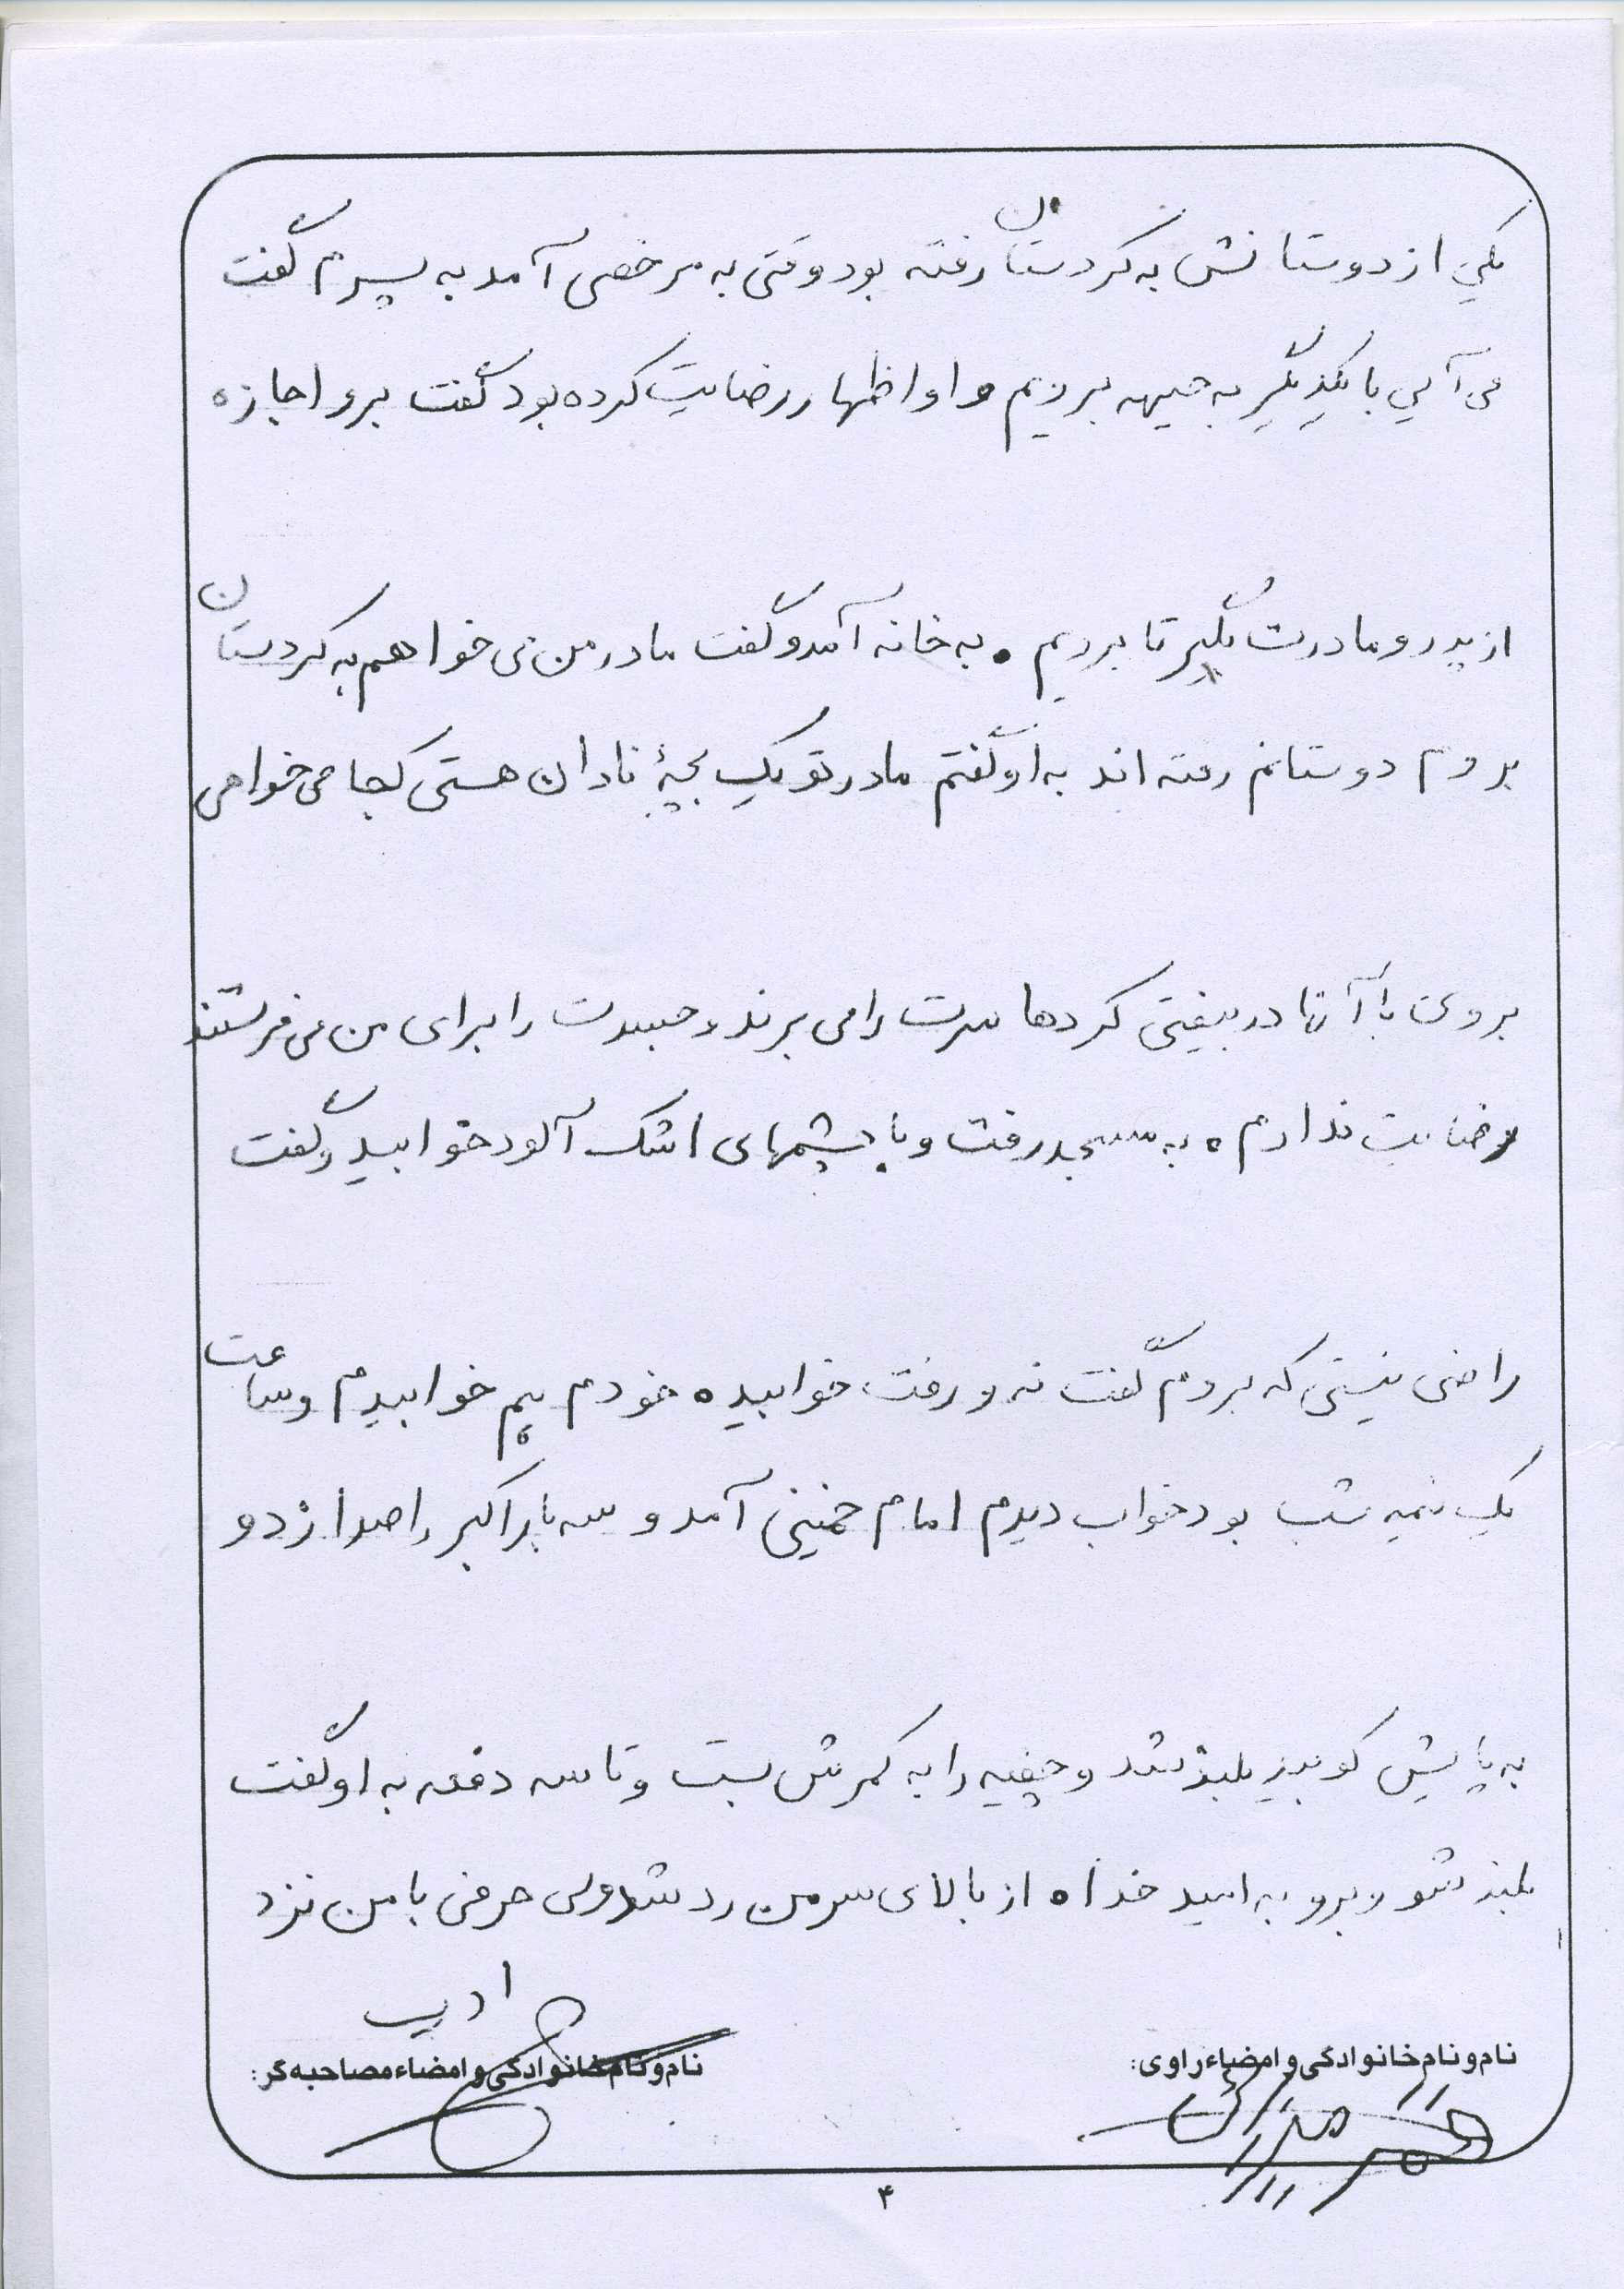 یکی از دوستانش به کردستان رفته بود وقتی به مرخصی آمد به پسرم گفت
می آیی با یکدیگر به جبهه برویم و او اظهار رضایت کرده بود گفت برو اجازه
از پدر و مادرت بگیر تا برویم . به خانه آمد و گفت مادر من می خواهم به کردستان
بروم دوستانم رفته اند به او گفتم مادر تو یک بچۀ نادان هستی کجا می خواهی
بروی با آنها در بیفتی کردها سرت را می برند و جسدت را برای من می فرستند
رضایت ندارم . به مسجد رفت و با چشمهای اشک آلود خوابید و گفت
راضی نیستی که بروم گفت نه و رفت خوابید . خودم هم خوابیدم و ساعت
یک نیمه شب بود خواب دیدم امام خمینی آمد و سه بار اکبر را صدا زد و
به پایش کوبید بلند شد و چفیه را به کمرش بست و تا سه دفعه به او گفت
بلند شو و برو به امید خدا . از بالای سر من رد شد ولی حرفی با من نزد
ادیب
نام و نام خانوادگی و امضاء راوی:
نام و نام خانوادگی و امضاء مصاحبه گر:
۴